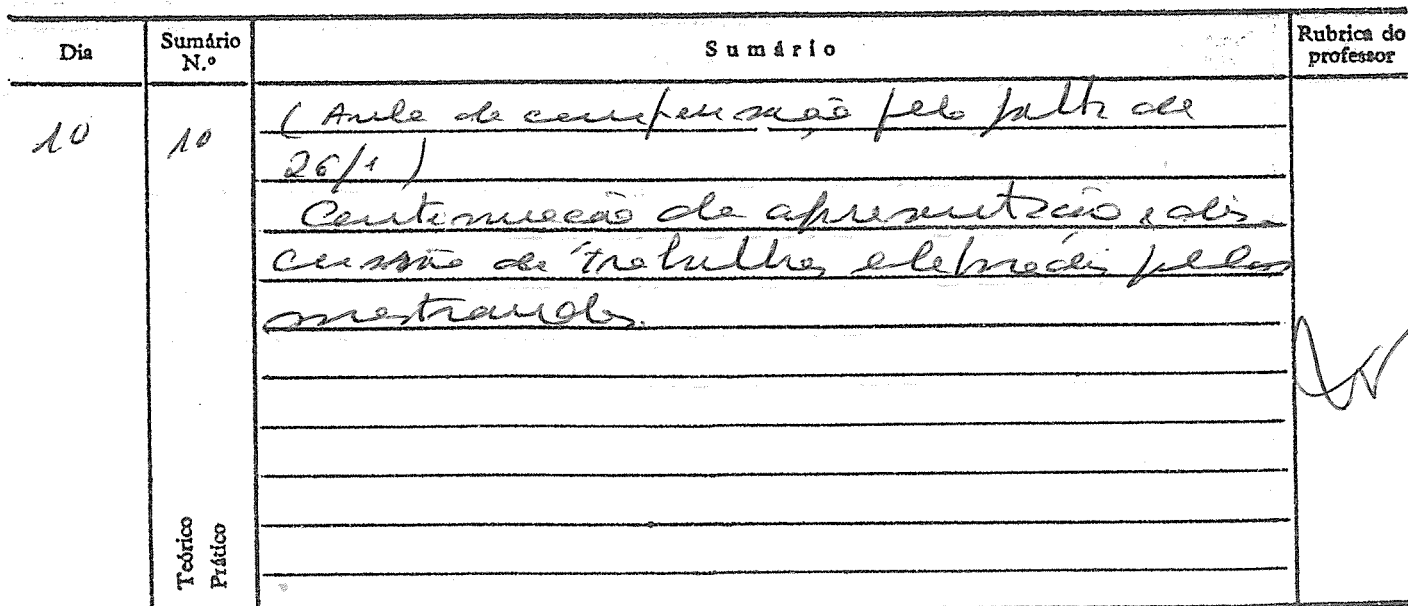 Dia Sumário N.º Sumário Rubrica do professor
10 10 (Aula de compensação pela falta de
26/1)
Continuação da apresentação e dis-
cussão de trabalhos elaborados pelos
mestrandos.
Teórico
Prático